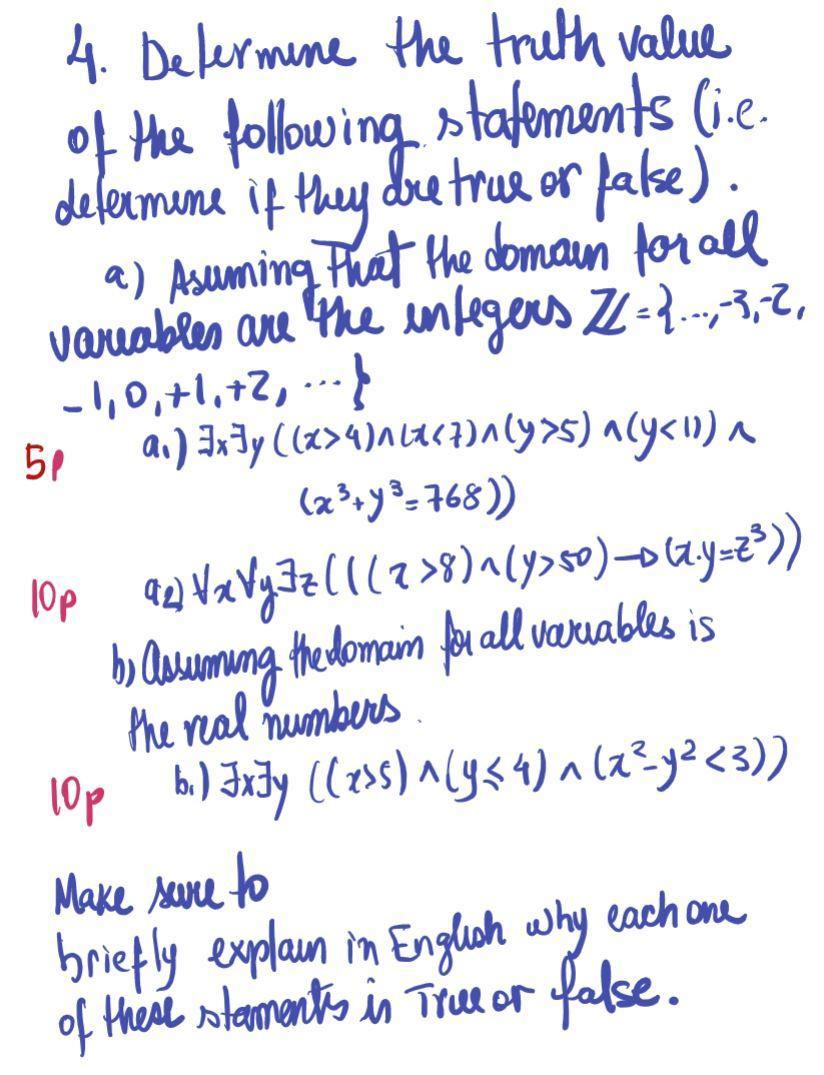 4. Determine the truth value
of the following statements (i.e.
determine if they are true or false).
a) Asuming that the domain for all
variables are the integers ℤ={...,-3,-2,
-1,0,+1,+2, ...}
5p a₁) ∃x∃y((x>4)∧(x<7)∧(y>5)∧(y<11)∧
(x³+y³=768))
10p a₂) ∀x∀y∃z((((x>8)∧(y>50)→(x·y=z³))
b) Assuming the domain for all variables is
the real numbers.
10p b₁) ∃x∃y ((x>5)∧(y≤4)∧(x²-y²<3))
Make sure to
briefly explain in English why each one
of these staments is True or false.